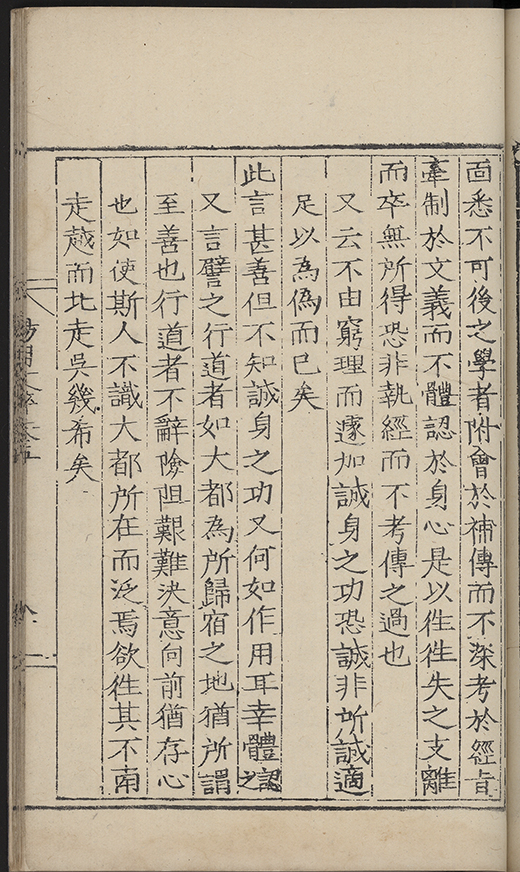 固悉不可後之學者附會於補傳而不深考於經旨
牽制於文義而不體認於身心是以徃徃失之支離
而卒無所得恐非執經而不考傳之過也
又云不由窮理而遽加誠身之功恐誠非所誠適
足以為偽而已矣
此言甚善但不知誠身之功又何如作用耳幸體認之
又言譬之行道者如大都為所歸宿之地猶所謂
至善也行道者不辭險阻艱難決意向前猶存心
也如使斯人不識大都所在而泛焉欲徃其不南
走越而北走吳幾希矣